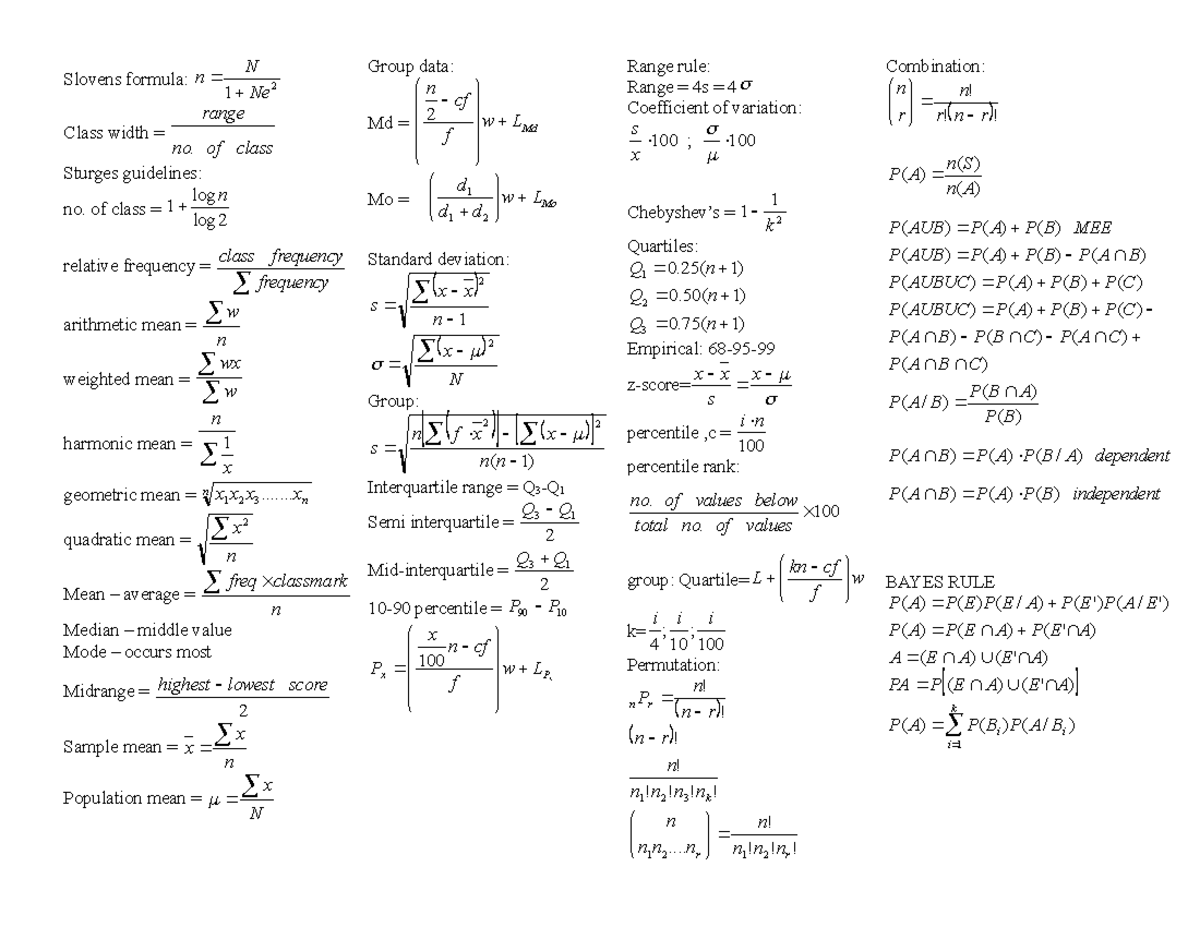 Slovens formula: n = N / (1 + Ne²)
Class width = range / no. of class
Sturges guidelines:
no. of class = 1 + log n / log 2
relative frequency = class frequency / ∑ frequency
arithmetic mean = ∑ w / n
weighted mean = ∑ wx / ∑ w
harmonic mean = n / ∑ (1/x)
geometric mean = ⁿ√(x₁x₂x₃.......xₙ)
quadratic mean = √(∑ x² / n)
Mean – average = ∑ freq × classmark / n
Median – middle value
Mode – occurs most
Midrange = highest - lowest score / 2
Sample mean = x̄ = ∑ x / n
Population mean = μ = ∑ x / N
Group data:
Md = ((n/2 - cf) / f) w + L_Md
Mo = (d₁ / (d₁ + d₂)) w + L_Mo
Standard deviation:
s = √(∑(x - x̄)² / (n - 1))
σ = √(∑(x - μ)² / N)
Group:
s = √((n[∑(f · x̄²)] - [∑(x - μ)]²) / n(n - 1))
Interquartile range = Q₃-Q₁
Semi interquartile = (Q₃ - Q₁) / 2
Mid-interquartile = (Q₃ + Q₁) / 2
10-90 percentile = P₉₀ - P₁₀
Pₓ = ((x/100 n - cf) / f) w + L_Pₓ
Range rule:
Range = 4s = 4σ
Coefficient of variation:
s/x ·100 ; σ/μ ·100
Chebyshev’s = 1 - 1/k²
Quartiles:
Q₁ = 0.25(n + 1)
Q₂ = 0.50(n + 1)
Q₃ = 0.75(n + 1)
Empirical: 68-95-99
z-score = (x - x̄) / s = (x - μ) / σ
percentile ,c = i · n / 100
percentile rank:
no. of values below / total no. of values × 100
group: Quartile= L + ((kn - cf) / f) w
k= i/4; i/10; i/100
Permutation:
ₙPᵣ = n! / (n - r)!
(n - r)!
n! / n₁!n₂!n₃!nₖ!
(n / n₁n₂....nᵣ) = n! / n₁!n₂!nᵣ!
Combination:
(n / r) = n! / r!(n - r)!
P(A) = n(S) / n(A)
P(AUB) = P(A) + P(B) MEE
P(AUB) = P(A) + P(B) - P(A∩B)
P(AUBUC) = P(A) + P(B) + P(C)
P(AUBUC) = P(A) + P(B) + P(C) -
P(A∩B) - P(B∩C) - P(A∩C) +
P(A∩B∩C)
P(A/B) = P(B∩A) / P(B)
P(A∩B) = P(A) · P(B/A) dependent
P(A∩B) = P(A) · P(B) independent
BAYES RULE
P(A) = P(E)P(E/A) + P(E')P(A/E')
P(A) = P(E∩A) + P(E'∩A)
A = (E∩A) ∪ (E'∩A)
PA = P[(E∩A) ∪ (E'∩A)]
P(A) = ∑ᵢ₌₁ᵏ P(Bᵢ)P(A/Bᵢ)